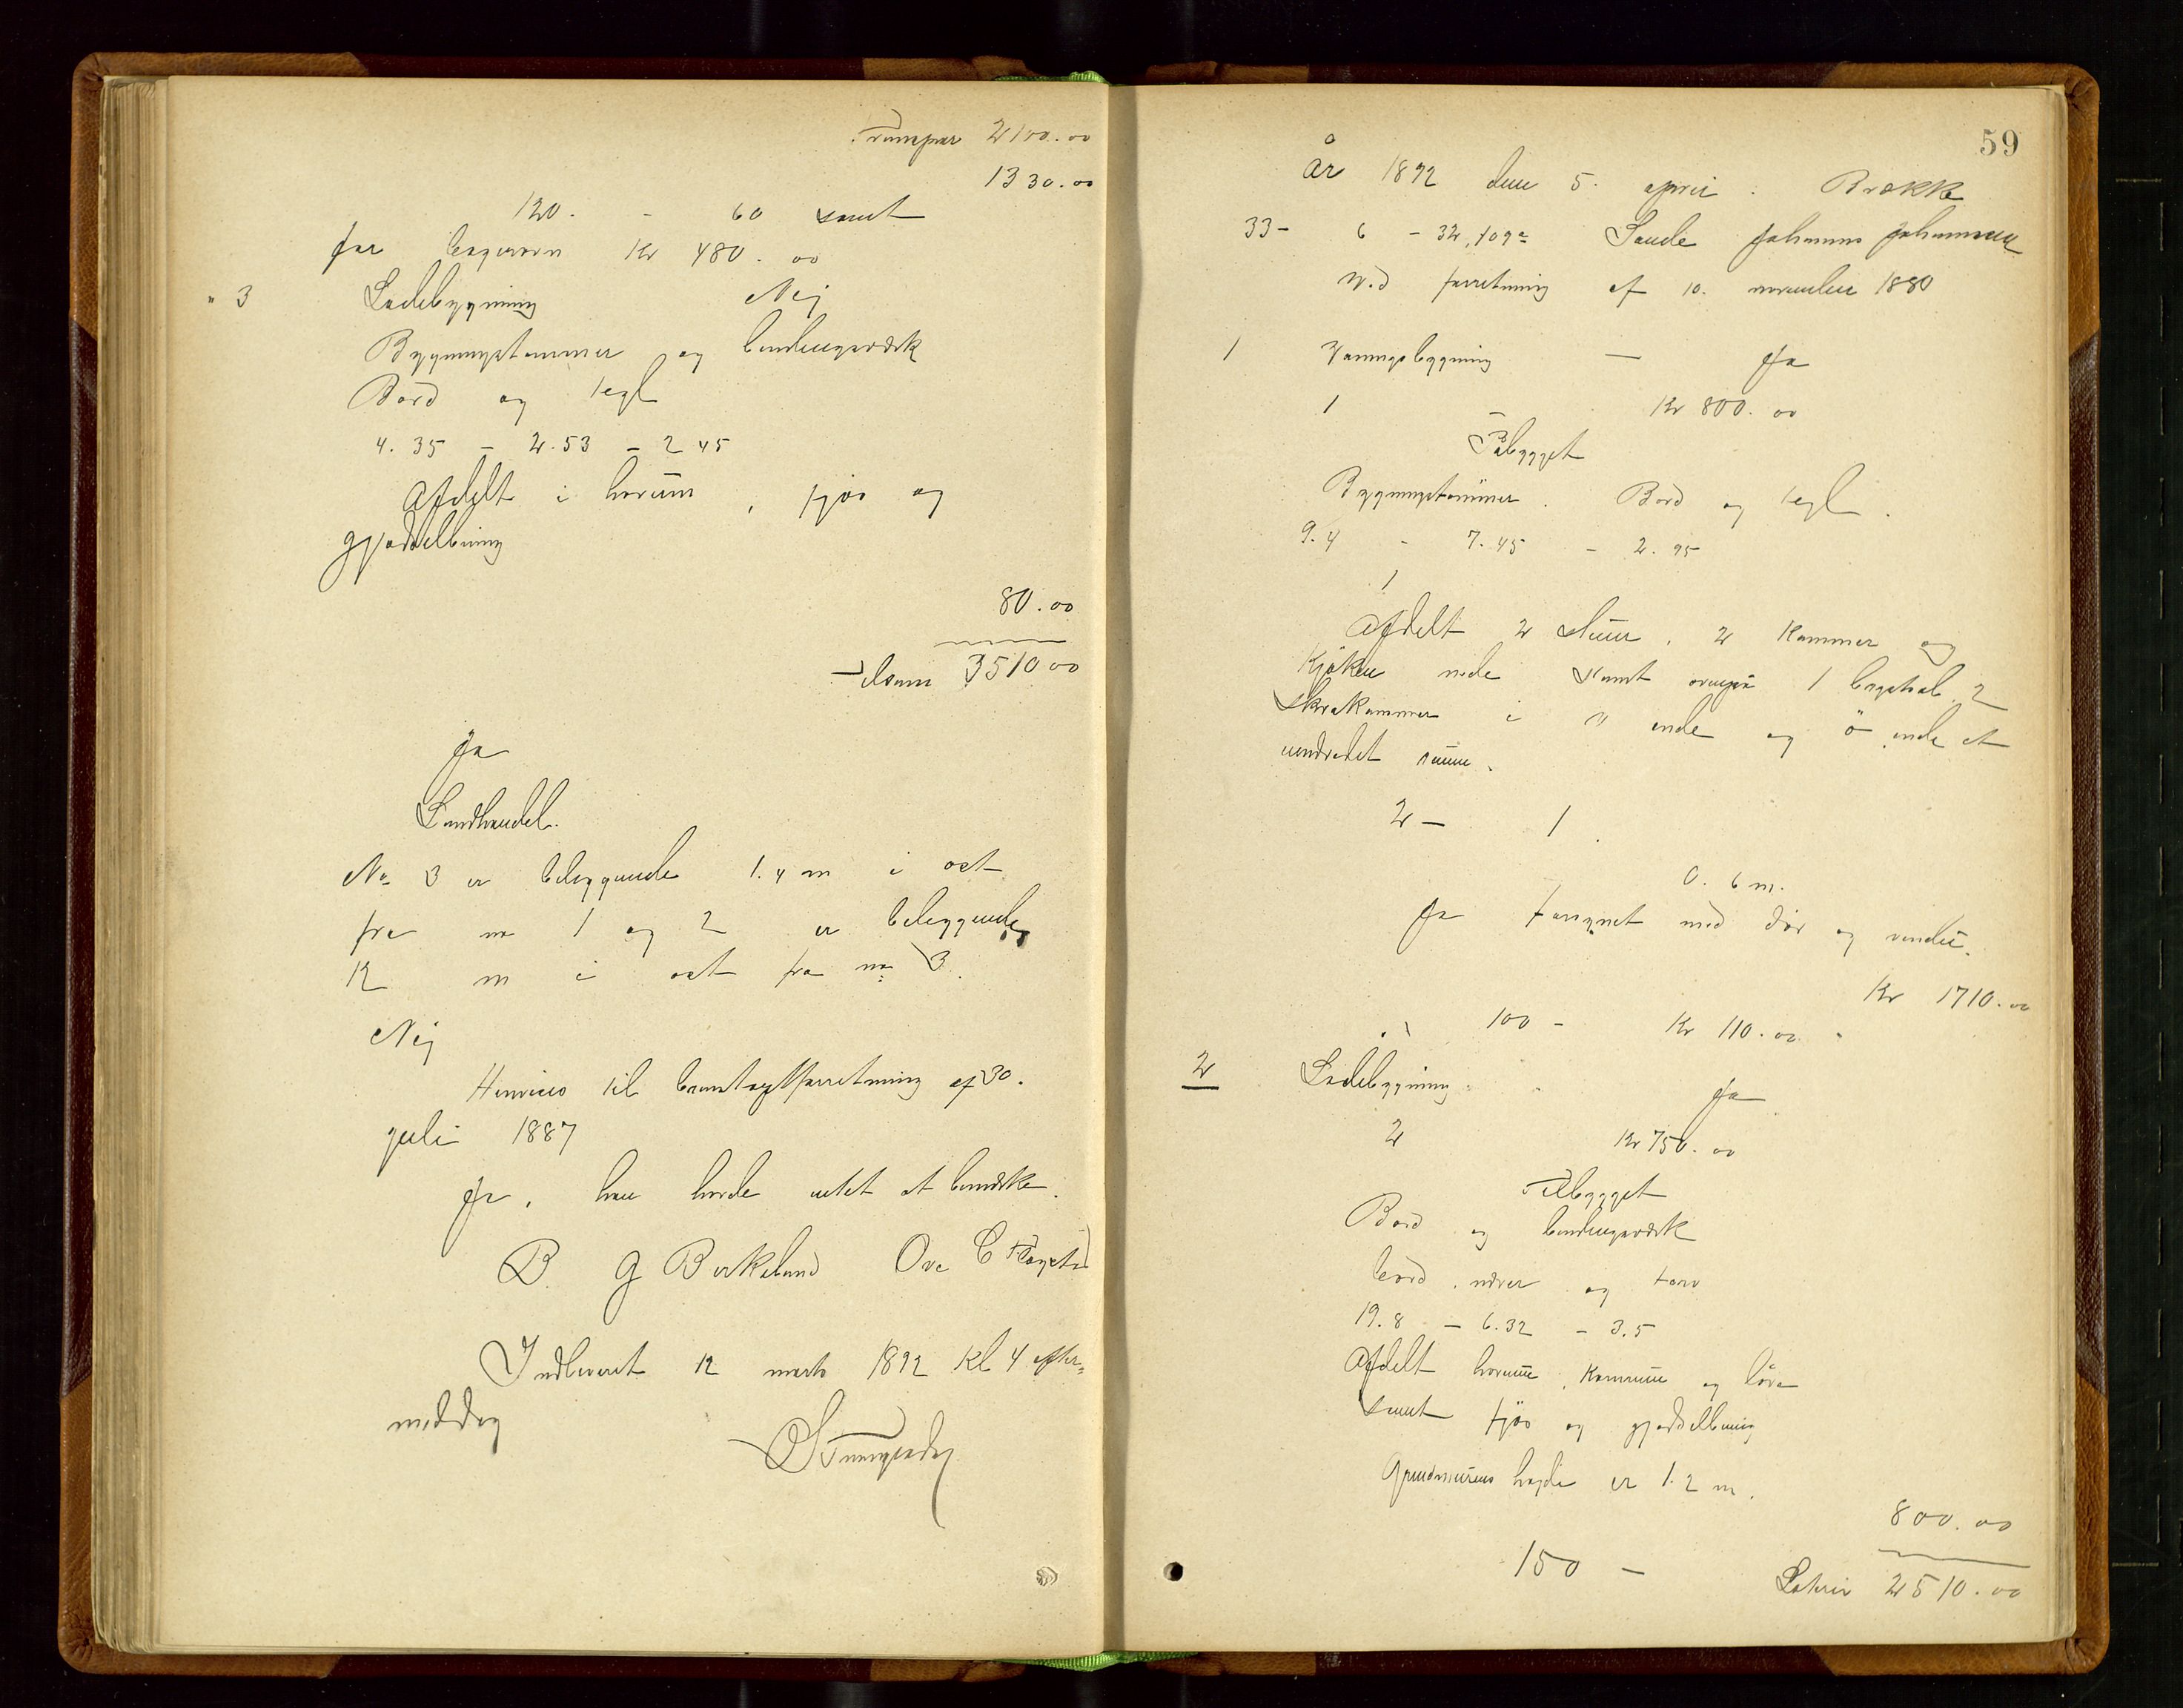 Transport 2100.00
1330.00
120. - 60 samt
for bagerovn Kr 480.00
" 3 Ladebygning Nej
Bygningstømmer og bindingsværk
Bord og tegl
4.35 - 2.53 - 2 45
Afdelt i horum, fjøs og
gjødselbinning
80.00
Tilsam 3510 00
Ja
Landhandel.
No 3 er beliggende 1.4 m i ost
fra no 1 og 2 er beliggende
12 m i ost fra no 3.
Nej
Henvises til brandtaxtforretning af 30.
juli 1887
Ja, han havde intet at bemærke.
B G Birkeland Ove C
Indleveret 12 marts 1892 Kl 4 efter=
middag
59
År 1892 den 5. april. Brække
33 - 6 - 32, Sande Johannes Johannesen
Ved forretning af 10. november 1880
1 Vaaningsbygning — Ja
1 - Kr 800.00
Påbygget
Bygningstømmer. Bord og tegl.
9.4 - 7.45 - 2.95
1
Afdelt 2 stuer, 2 kammer og
kjøken nede samt ovenpå 1 bagstal 2
skråkammer i v ende og ö ende et
uindredet rum.
2 - 1.
0.6 m.
Ja forsynet med dør og vindu.
Kr 1710.00
100 - Kr 110.00
2 Ladebygning Ja
2 Kr 750.00
Tilbygget
Bord og bindingsværk
bord, næver og torv
19.8 - 6.32 - 3.5
Afdelt horum, kornrum og låve
samt fjøs og gjødselbinning
Grundmurens højde er 1.2 m.
800.00
150 - Latus 2510.00